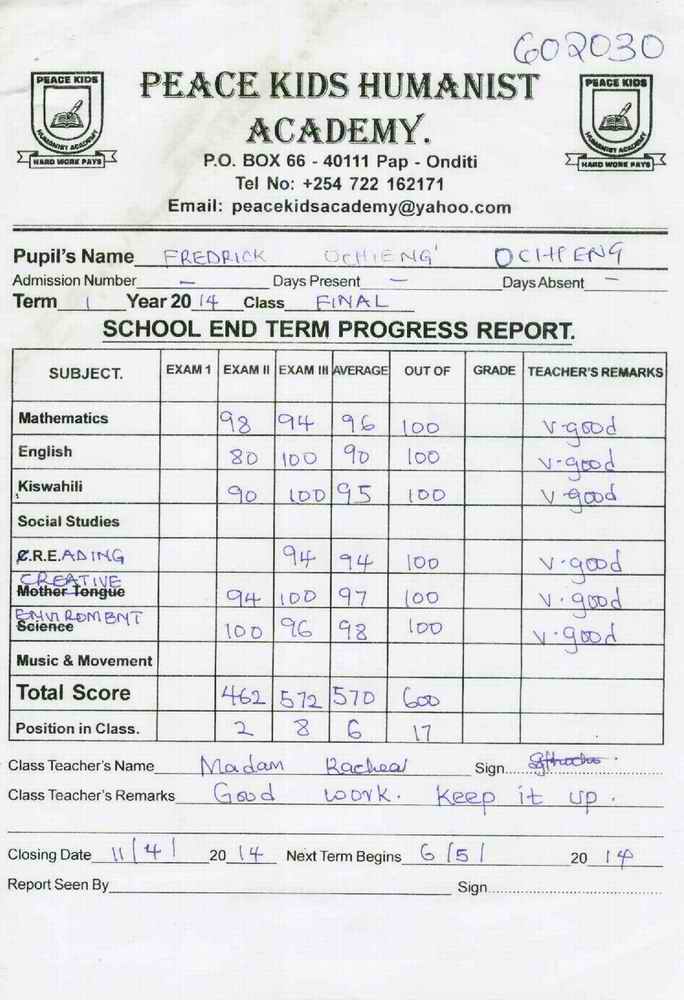 602030
PEACE KIDS
HUMANIST ACADEMY
HARD WORK PAYS
PEACE KIDS HUMANIST
ACADEMY.
PEACE KIDS
HUMANIST ACADEMY
HARD WORK PAYS
P.O. BOX 66 - 40111 Pap - Onditi
Tel No: +254 722 162171
Email: peacekidsacademy@yahoo.com
Pupil's Name FREDRICK OCHIENG' OCHIENG
Admission Number — Days Present — Days Absent —
Term 1 Year 20 14 Class FINAL
SCHOOL END TERM PROGRESS REPORT.
SUBJECT. EXAM 1 EXAM II EXAM III AVERAGE OUT OF GRADE TEACHER'S REMARKS
Mathematics 98 94 96 100 v.good
English 80 100 90 100 v.good
Kiswahili 90 100 95 100 v.good
Social Studies
C.R.E.ADING 94 94 100 v.good
CREATIVE
Mother Tongue 94 100 97 100 v.good
ENVIROMENT
Science 100 96 98 100 v.good
Music & Movement
Total Score 462 572 570 600
Position in Class. 2 8 6 17
Class Teacher's Name Madam Racheal Sign.
Class Teacher's Remarks Good work. Keep it up.
Closing Date 11/4/ 20 14 Next Term Begins 6/5/ 20 14
Report Seen By Sign